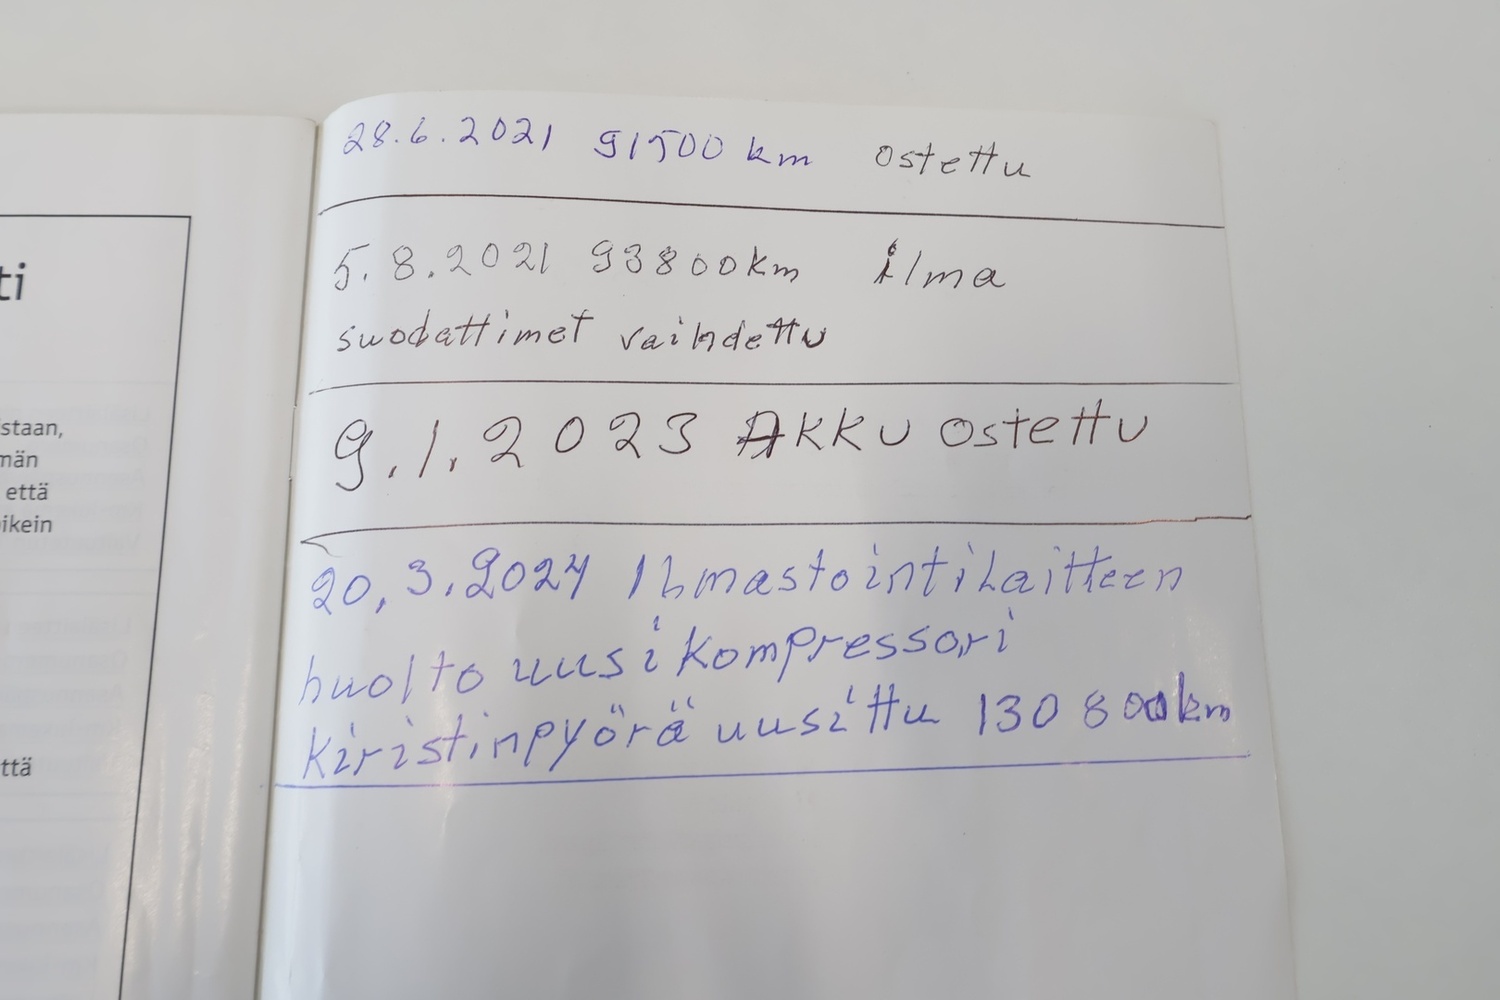 ti
staan,
män
että
oikein
ttä
28.6.2021 91500 km ostettu
5.8.2021 93800km ilma
suodattimet vaihdettu
9.1.2023 Akku ostettu
20.3.2024 Ilmastointilaitteen
huolto uusi kompressori
kiristinpyörä uusittu 130 800km